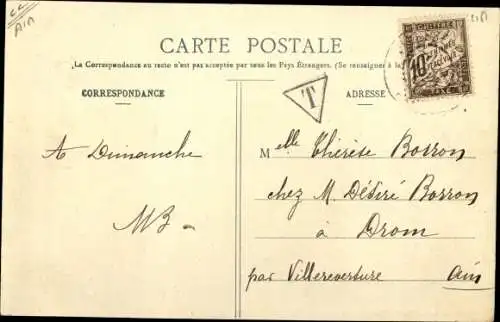 CC
AIN
CARTE POSTALE
La Correspondance au recto n'est pas acceptée par tous les Pays Étrangers. (Se renseigner à la
CORRESPONDANCE
ADRESSE
T
CHIFFRE
10
TAXE
A Dimanche
MB
Melle Thérèse Borron
chez M. Désiré Borron
à Drom
par Villereversture Ain